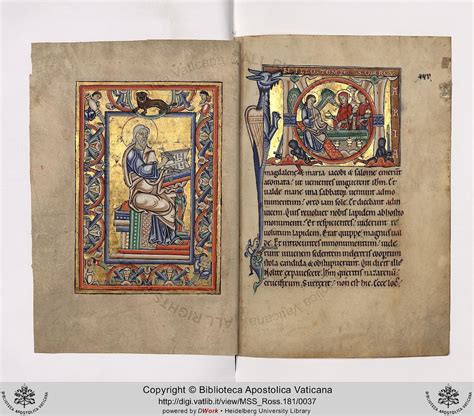 magdalene & maria iacobi & salome emerunt
aromata: ut uenientes ungerent ihm. Et
ualde mane una sabbatoꝝ ueniunt ad mo
numentum: orto iam sole. Et dicebant ad in
uicem. Quis reuoluet nobis lapidem ab hostio
monumenti? Et respicientes: uiderunt re
uolutum lapidem. Erat quippe magnus ual
de. Et introeuntes in monumentum: uide
runt iuuenem sedentem in dextris coopertum
stola candida & obstupuerunt. Qui dicit illis
nolite expauescere. Ihm queritis nazarenū
crucifixum. Surrexit: non est hic. Ecce
Copyright © Biblioteca Apostolica Vaticana
http://digi.vatlib.it/view/MSS_Ross.181/0037
powered by DWork • Heidelberg University Library
BIBLIOTECA APOSTOLICA VATICANA
BIBLIOTECA APOSTOLICA VATICANA